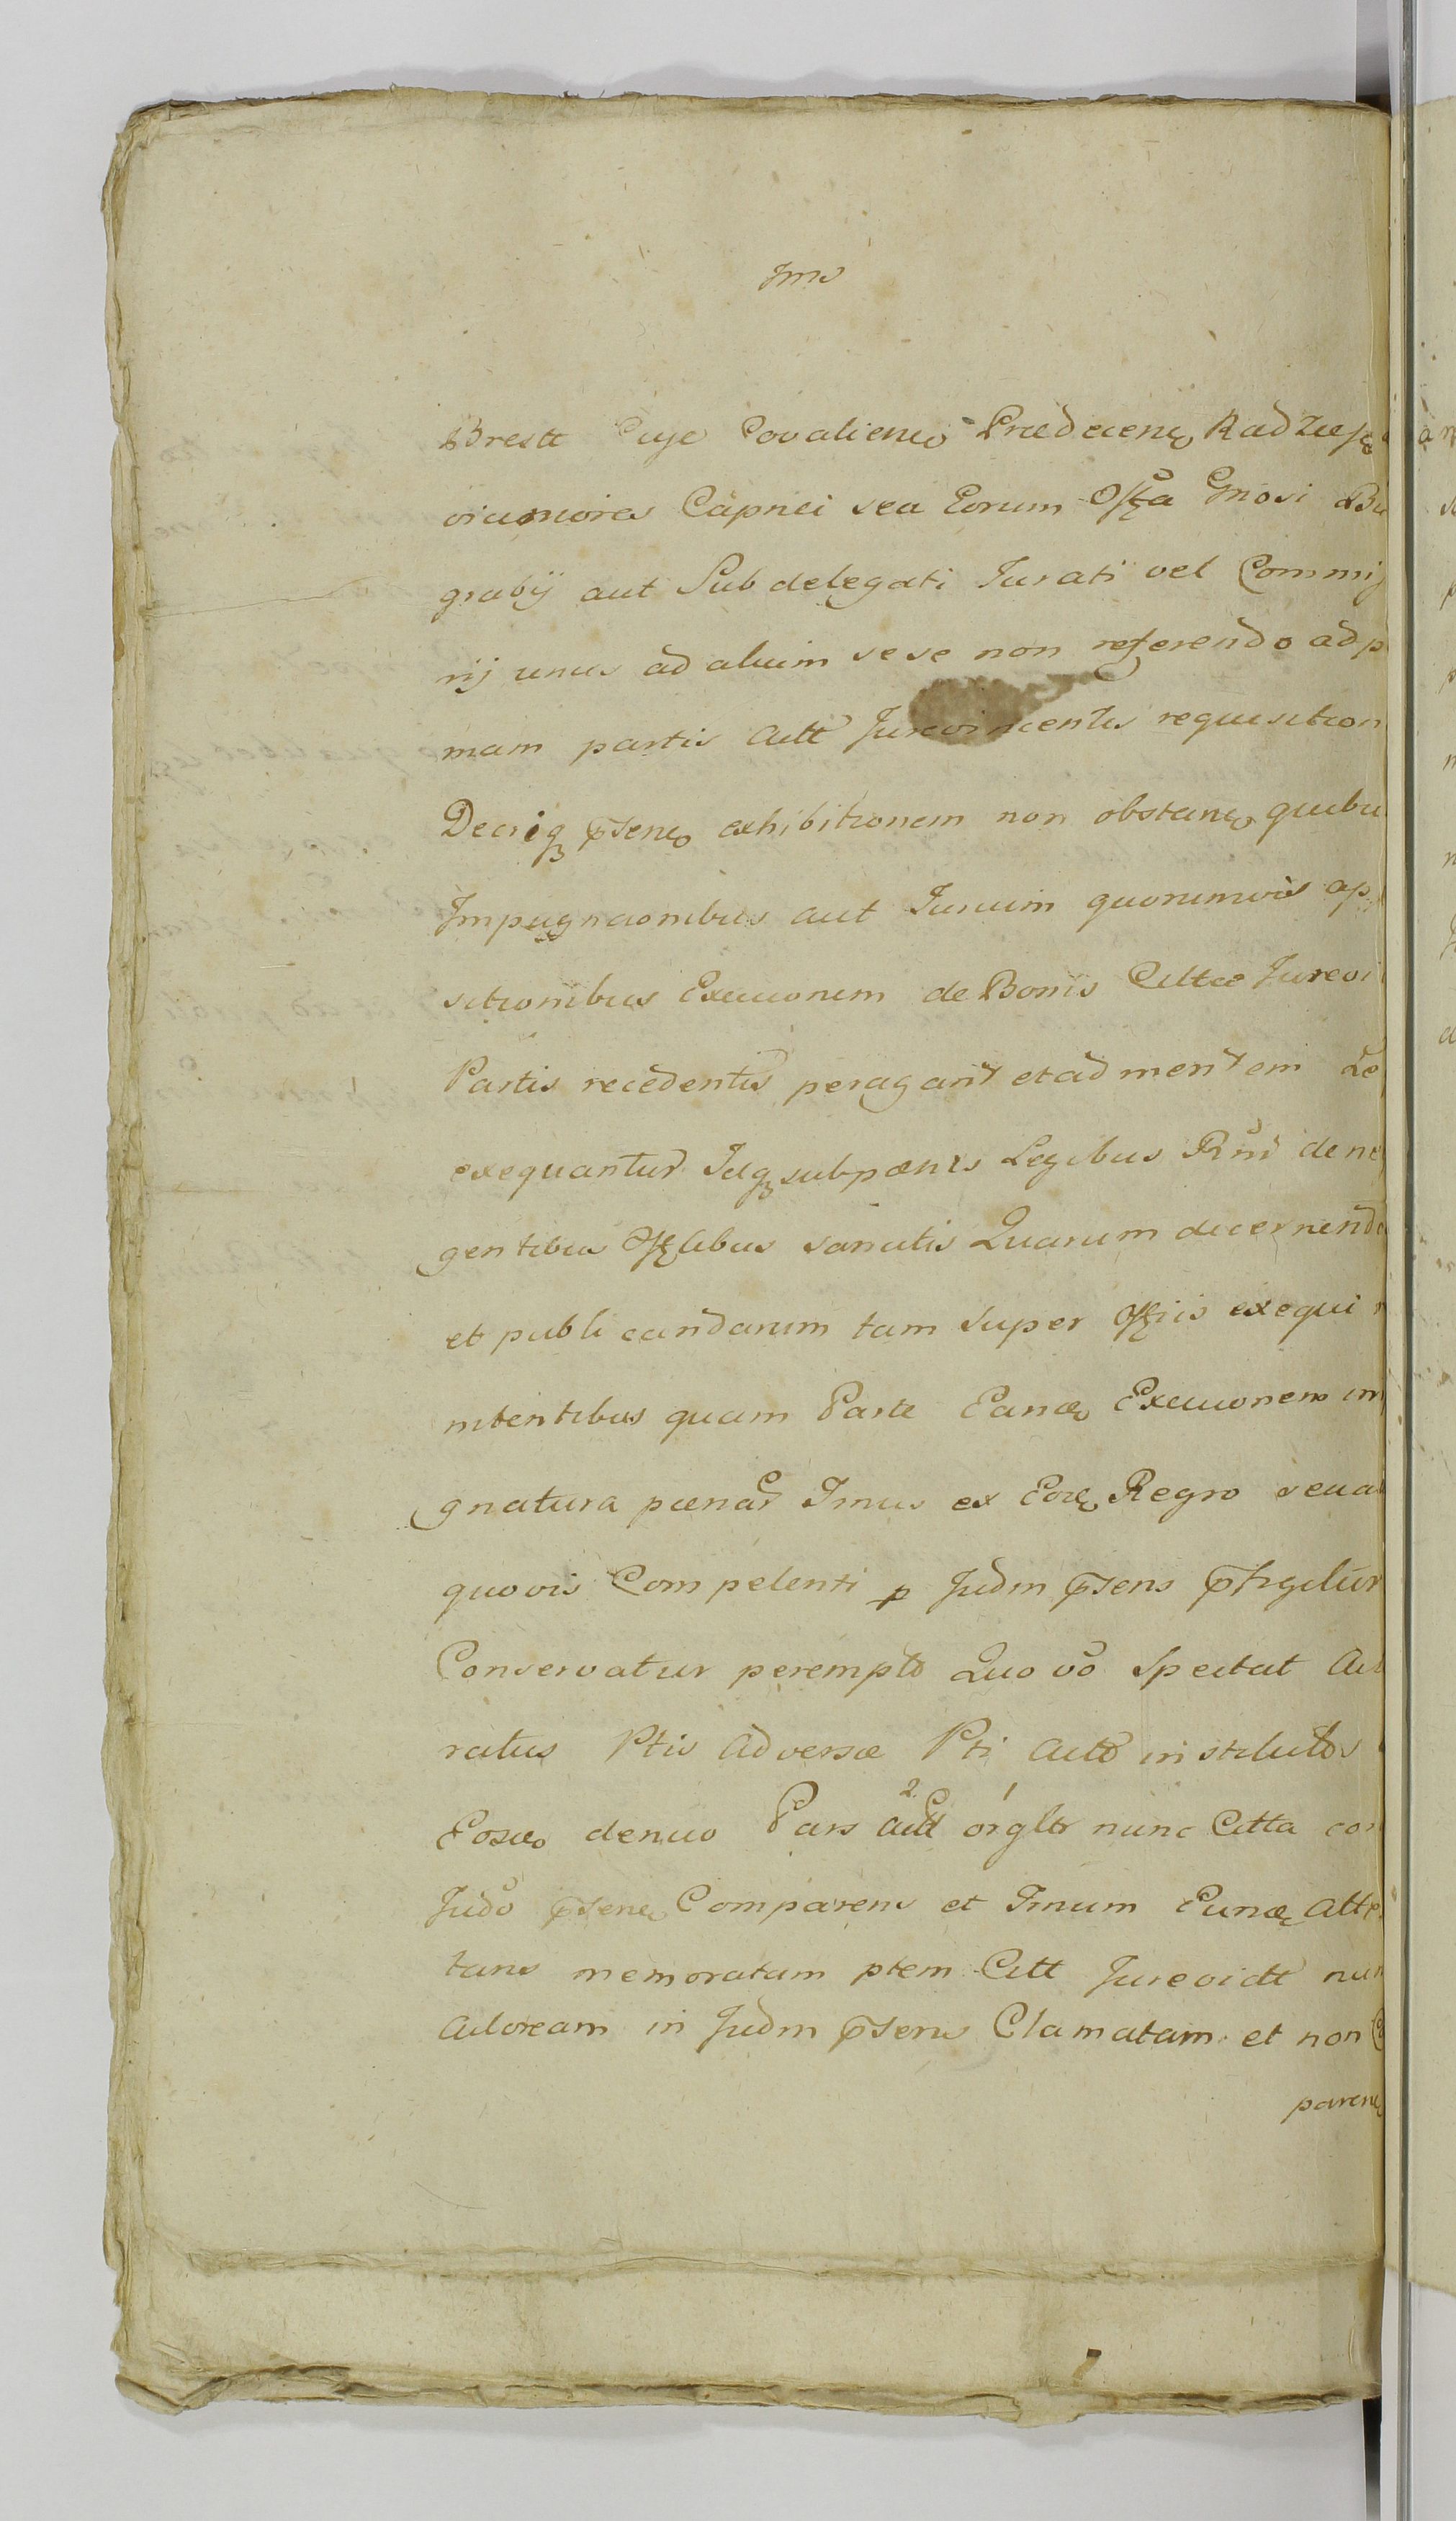 Ims
Brestt Cuje Covaliens Prædecens Radzieje
viciniores Capnei seu Eorum Offa Gnosi Bu
grabij aut Subdelegati Jurati vel Commis
rij unus ad alium sese non referendo ad p
mam partis Actt Jurevincentis requisition
Decriq pñsens exhibitionem non obstans quibu
Impugnaonibus aut Jurium quorumvis ap
sitionibus Execuonem de Bonis Cittæ Jurevi
Partis recedentis peragant et ad mentem Le
exequantur Idq sub pœnis Legibus Rni de ne
gentibus Offlibus sancitis Quarum decernenda
et publicandarum tam super Offiis exequi
nitentibus quam Parte Eandæ Execuonem im
gnatura pœnar Imus ex Eod Regro seu a
quovis Competenti p Judm pñsens pñfigitur
Conservatur perempto Quo vo Spectat Act
ratus Ptis Adversæ Pti Actt institutos
Eosdo denuo Pars Actt orglr nunc Citta cor
Judo pñsene Comparens et Imum Eund Atte
tans memoratam ptem Citt Jurevictt nun
Actoream in Judm pñsens Clamatam et non
parens